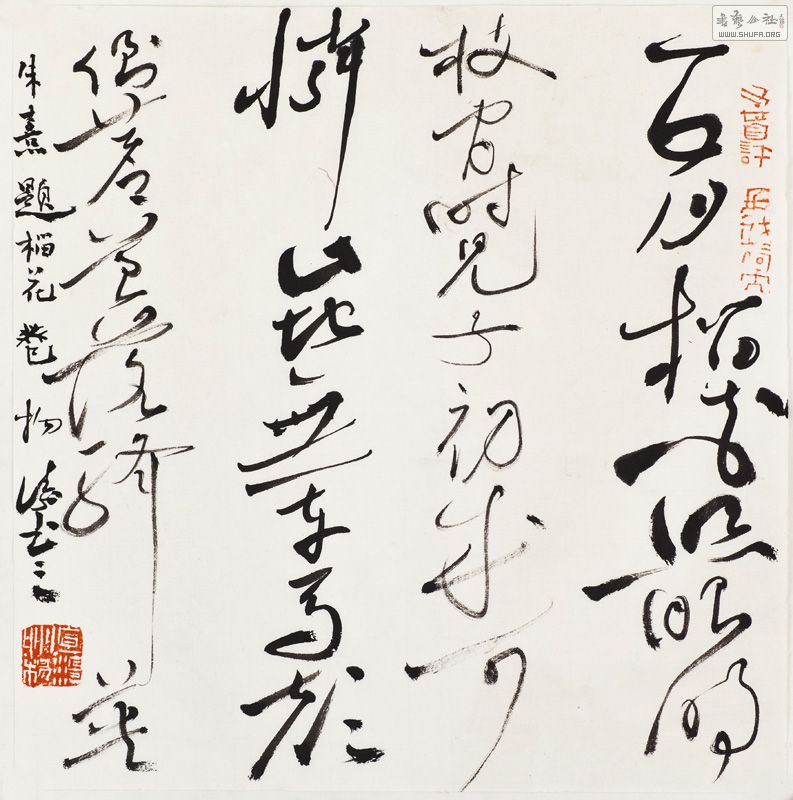 五月榴花照眼明
枝間時見子初成可
憐此地無車馬顛
倒蒼苔落絳英
朱熹題榴花
書藝公社
WWW.SHUFA.ORG